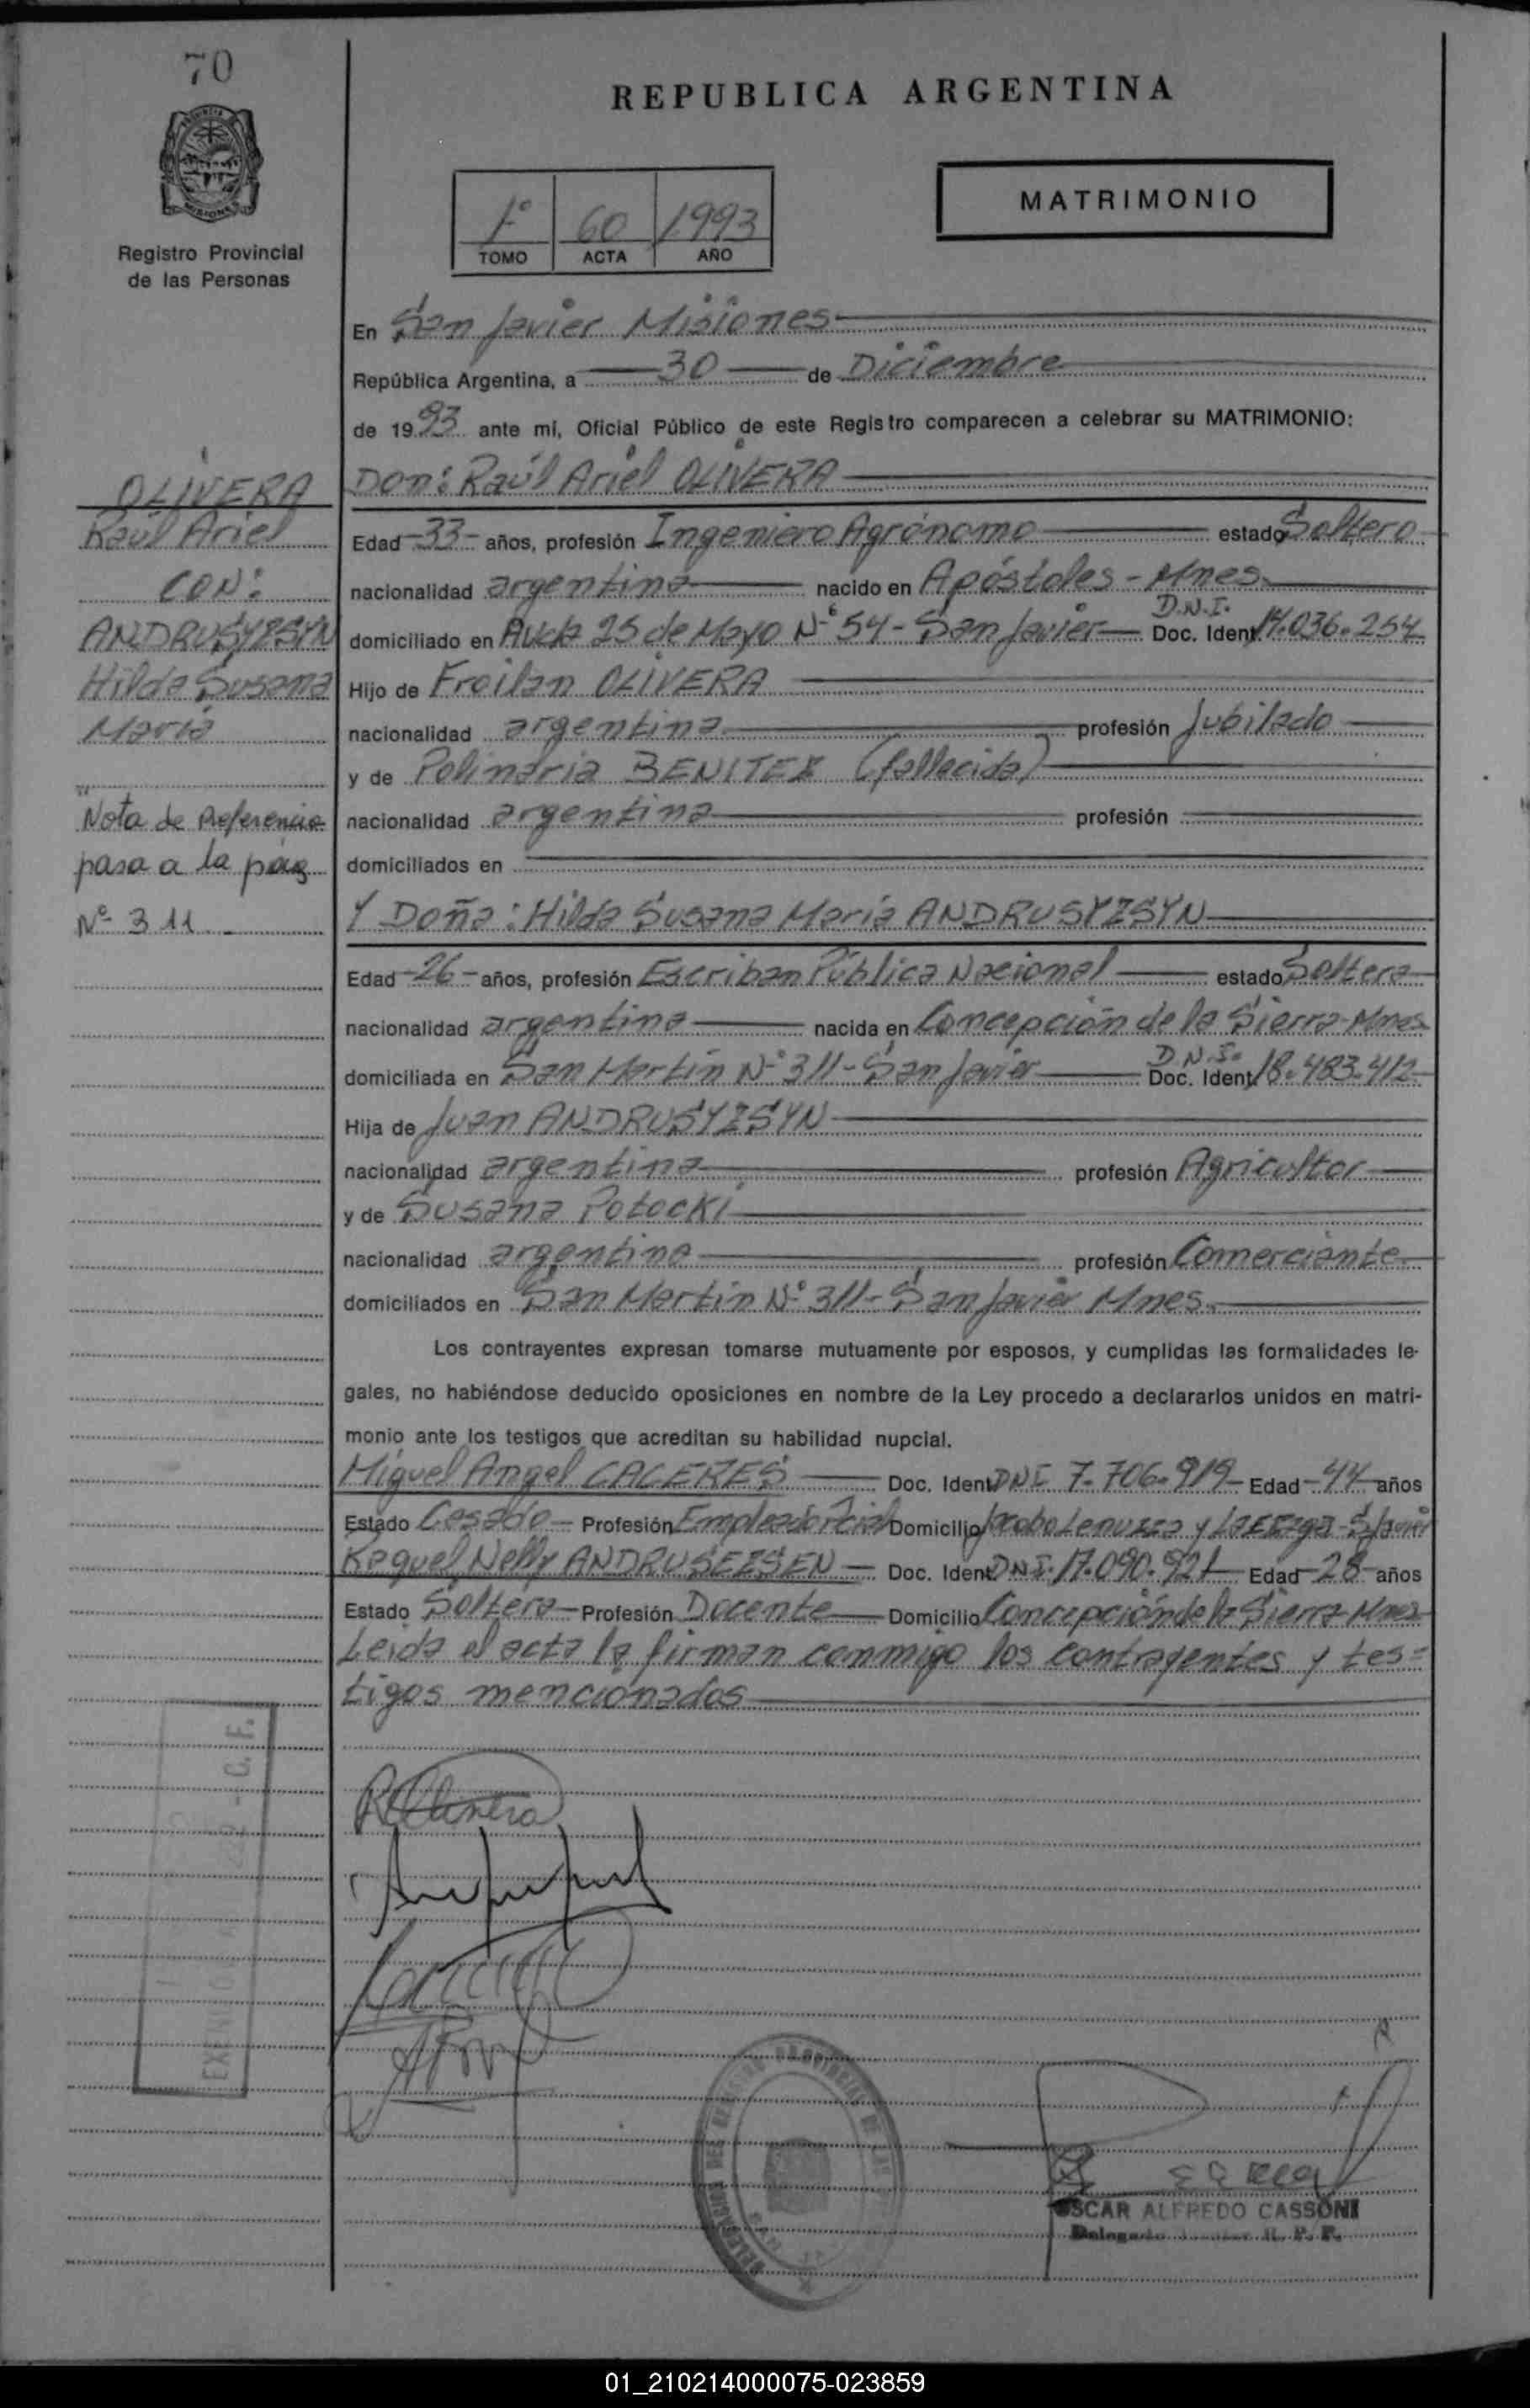 70
REPUBLICA ARGENTINA
MISIONES
Registro Provincial
de las Personas
1º 60 1993
TOMO ACTA AÑO
MATRIMONIO
En San Javier Misiones
República Argentina, a 30 de Diciembre
de 1993 ante mi, Oficial Público de este Registro comparecen a celebrar su MATRIMONIO:
OLIVERA
Raúl Ariel
CON:
ANDRUSYZSYN
Hilda Susana
María
Nota de Referencia
pasa a la pág
Nº 311
Don: Raúl Ariel OLIVERA
Edad 33 años, profesión Ingeniero Agrónomo estado Soltero
nacionalidad argentina nacido en Apóstoles - Mnes.
domiciliado en Avda 25 de Mayo Nº 54 - San Javier D.N.I. Doc. Ident 14.036.254
Hijo de Froilan OLIVERA
nacionalidad argentina profesión Jubilado
y de Polinaria BENITEZ (fallecida)
nacionalidad argentina profesión
domiciliados en
Y Doña: Hilda Susana María ANDRUSYZSYN
Edad 26 años, profesión Escriban Pública Nacional estado Soltera
nacionalidad argentina nacida en Concepción de la Sierra Mnes
domiciliada en San Martín Nº 311 - San Javier D.N.I. Doc. Ident 18.483.412
Hija de Juan ANDRUSYZSYN
nacionalidad argentina profesión Agricultor
y de Susana Potocki
nacionalidad argentina profesión Comerciante
domiciliados en San Martín Nº 311 - San Javier Mnes.
Los contrayentes expresan tomarse mutuamente por esposos, y cumplidas las formalidades le-
gales, no habiéndose deducido oposiciones en nombre de la Ley procedo a declararlos unidos en matri-
monio ante los testigos que acreditan su habilidad nupcial.
Miguel Angel CACERES Doc. Ident DNI 7.706.919 Edad 44 años
Estado Casado Profesión Empleado Domicilio y
Raquel Nelly ANDRUSEZSEN Doc. Ident DNI. 17.090.921 Edad 28 años
Estado Soltera Profesión Docente Domicilio Concepción de la Sierra Mnes
Leida el acta la firman conmigo los contrayentes y tes=
tigos mencionados
ROlivera
OSCAR ALFREDO CASSONI
R. P. P.
01_210214000075-023859